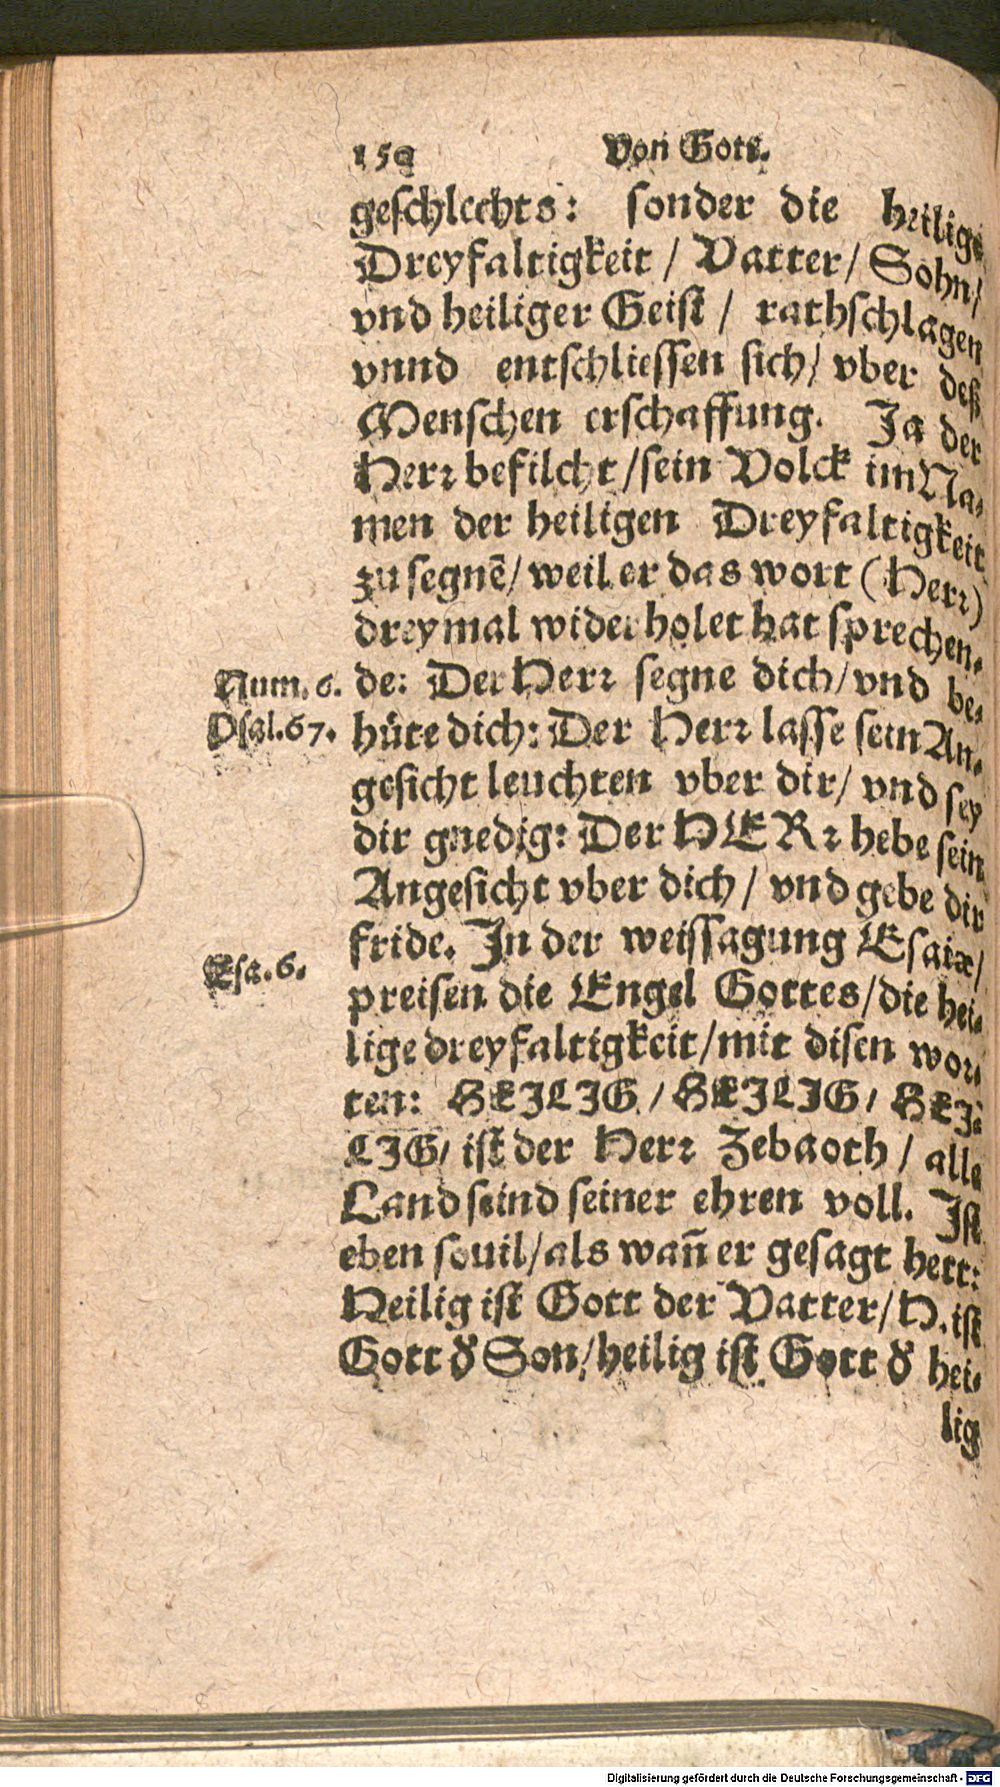 150 Von Gott.
geschlechts: sonder die heilige
Dreyfaltigkeit / Vatter / Sohn /
vnd heiliger Geist / rathschlagen
vnnd entschliessen sich / vber deß
Menschen erschaffung. Ja der
Herr befilcht / sein Volck im Na-
men der heiligen Dreyfaltigkeit
zu segnē / weil er das wort (Herr)
dreymal widerholet hat sprechen-
Num. 6. de: Der Herr segne dich / vnd be-
Psal. 67. hüte dich: Der Herr lasse sein An-
gesicht leuchten vber dir / vnd sey
dir gnedig: Der HERr hebe sein
Angesicht vber dich / vnd gebe dir
fride. In der weissagung Esaiæ /
Esa. 6. preisen die Engel Gottes / die hei-
lige dreyfaltigkeit / mit disen wor-
ten: HEILIG / HEILIG / HEI-
LIG / ist der Herr Zebaoth / alle
Land seind seiner ehren voll. Ist
eben souil / als wañ er gesagt hett:
Heilig ist Gott der Vatter / H. ist
Gott d̕ Son / heilig ist Gott d̕ hei-
lig
Digitalisierung gefördert durch die Deutsche Forschungsgemeinschaft - DFG